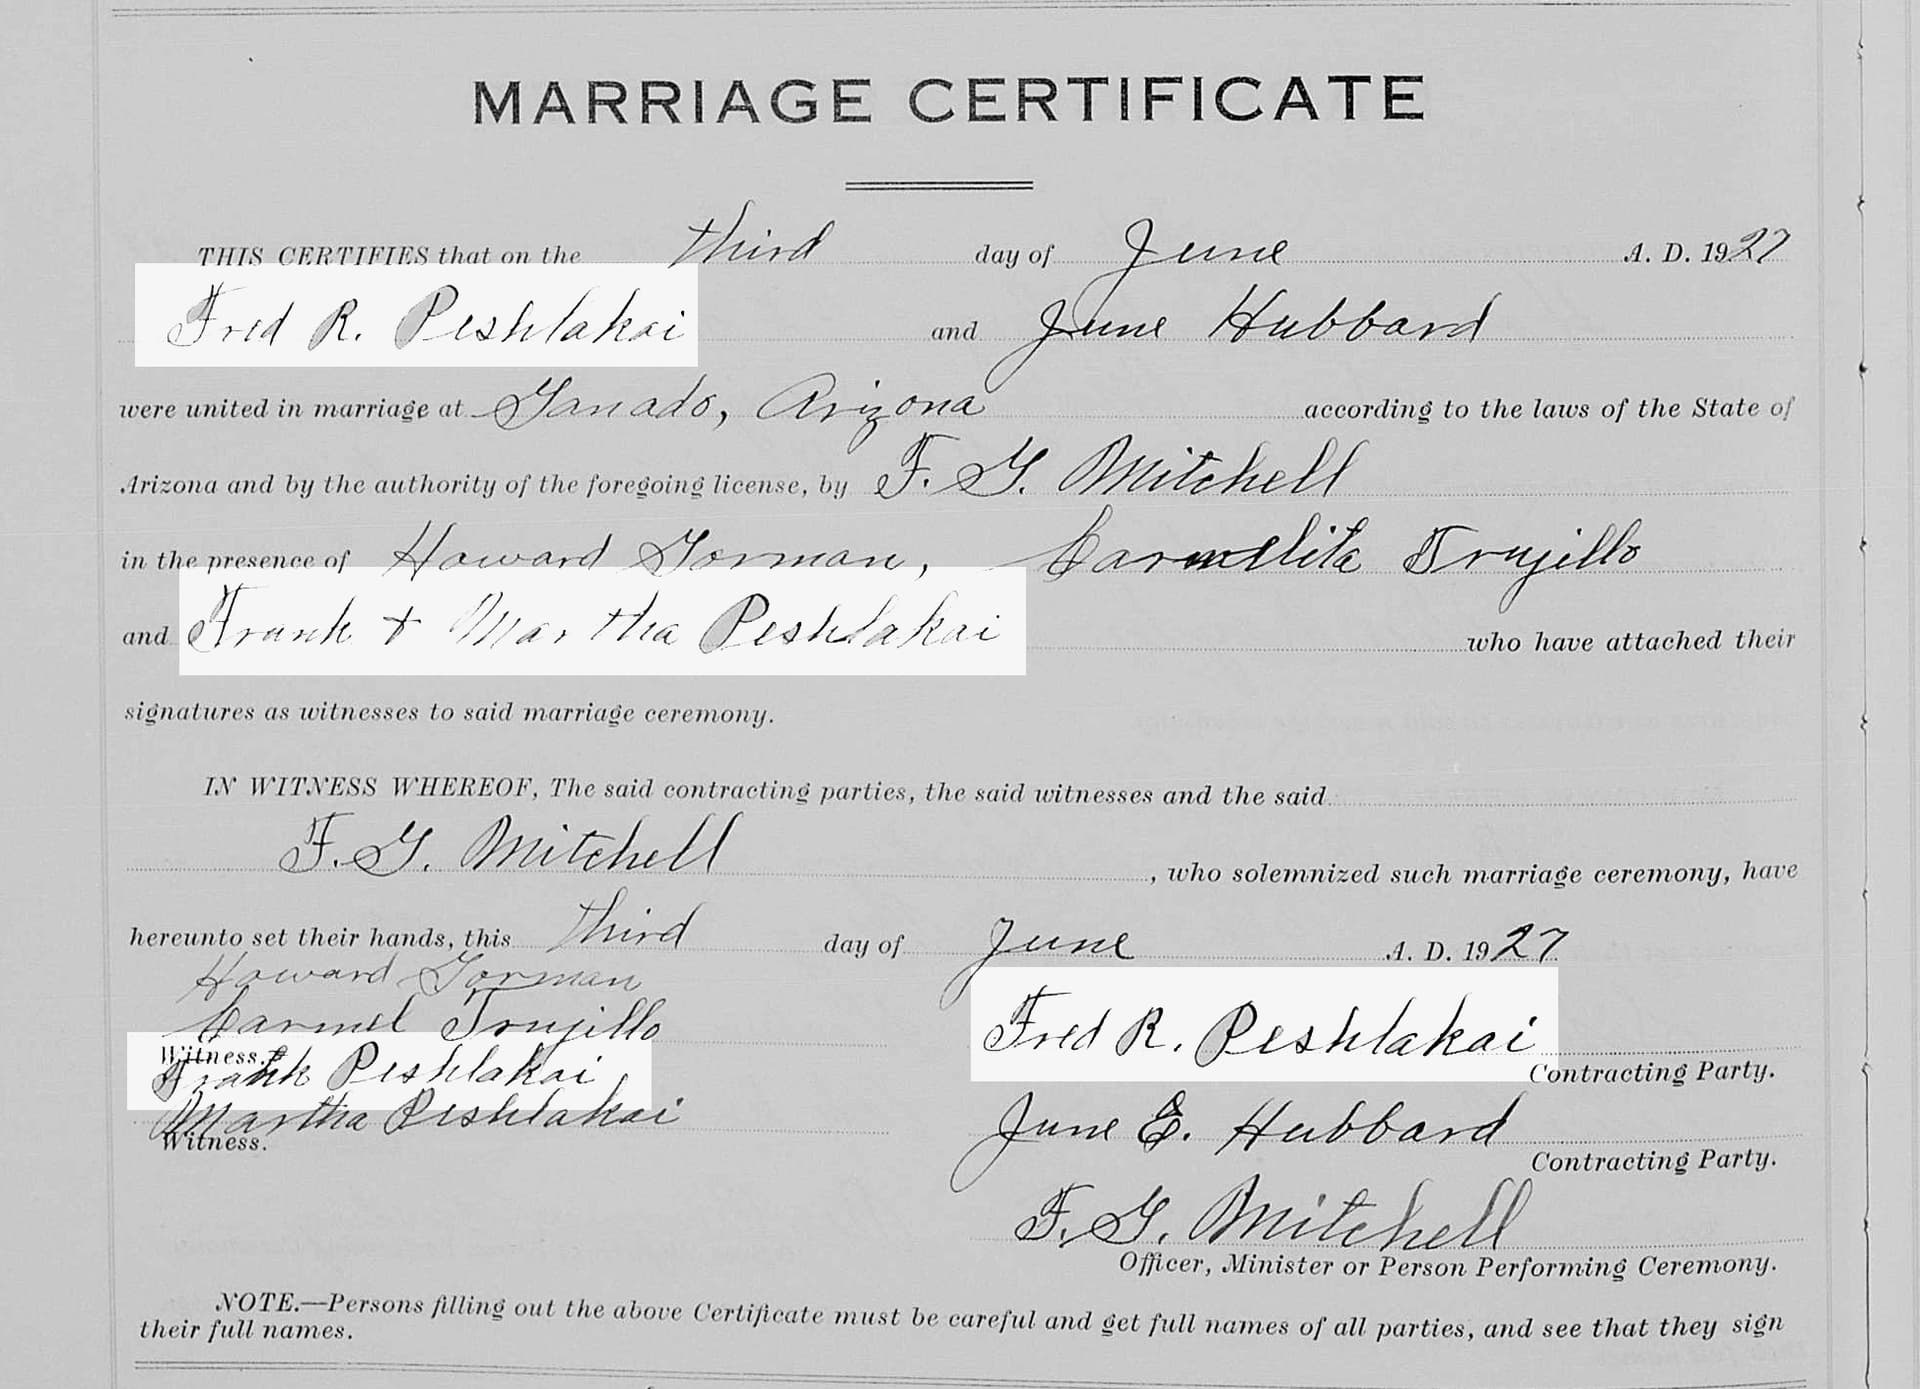 MARRIAGE CERTIFICATE
THIS CERTIFIES that on the third day of June A. D. 1927
Fred R. Peshlakai and June Hubbard
were united in marriage at Ganado, Arizona according to the laws of the State of
Arizona and by the authority of the foregoing license, by F. G. Mitchell
in the presence of Howard Gorman, Carmelita Trujillo
and Frank + Martha Peshlakai who have attached their
signatures as witnesses to said marriage ceremony.
IN WITNESS WHEREOF, The said contracting parties, the said witnesses and the said
F. G. Mitchell, who solemnized such marriage ceremony, have
hereunto set their hands, this third day of June A. D. 1927
Howard Gorman
Carmel Trujillo Fred R. Peshlakai
Witness.
Frank Peshlakai Contracting Party.
Martha Peshlakai June E. Hubbard
Witness.
Contracting Party.
F. G. Mitchell
Officer, Minister or Person Performing Ceremony.
NOTE.—Persons filling out the above Certificate must be careful and get full names of all parties, and see that they sign
their full names.